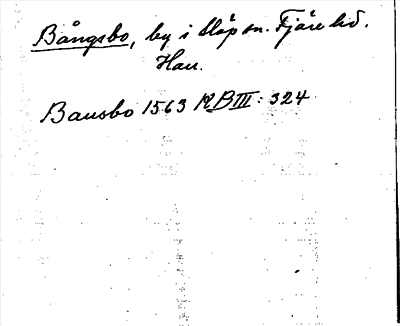 Bångsbo, by i Släp sn. Fjäre hd.
Hall.
Bausbo 1563 RB III: 324